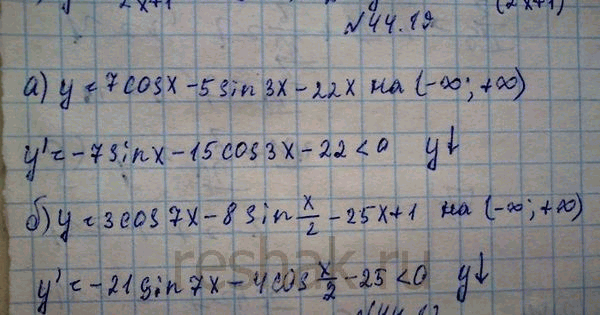 2x+1 (2x+1)
№44.19
а) y = 7cosx - 5sin3x - 22x на (-∞; +∞)
y' = -7sinx - 15cos3x - 22 < 0 y↓
б) y = 3cos7x - 8sin x/2 - 25x + 1 на (-∞; +∞)
reshak.ru
y' = -21sin7x - 4cos x/2 - 25 < 0 y↓